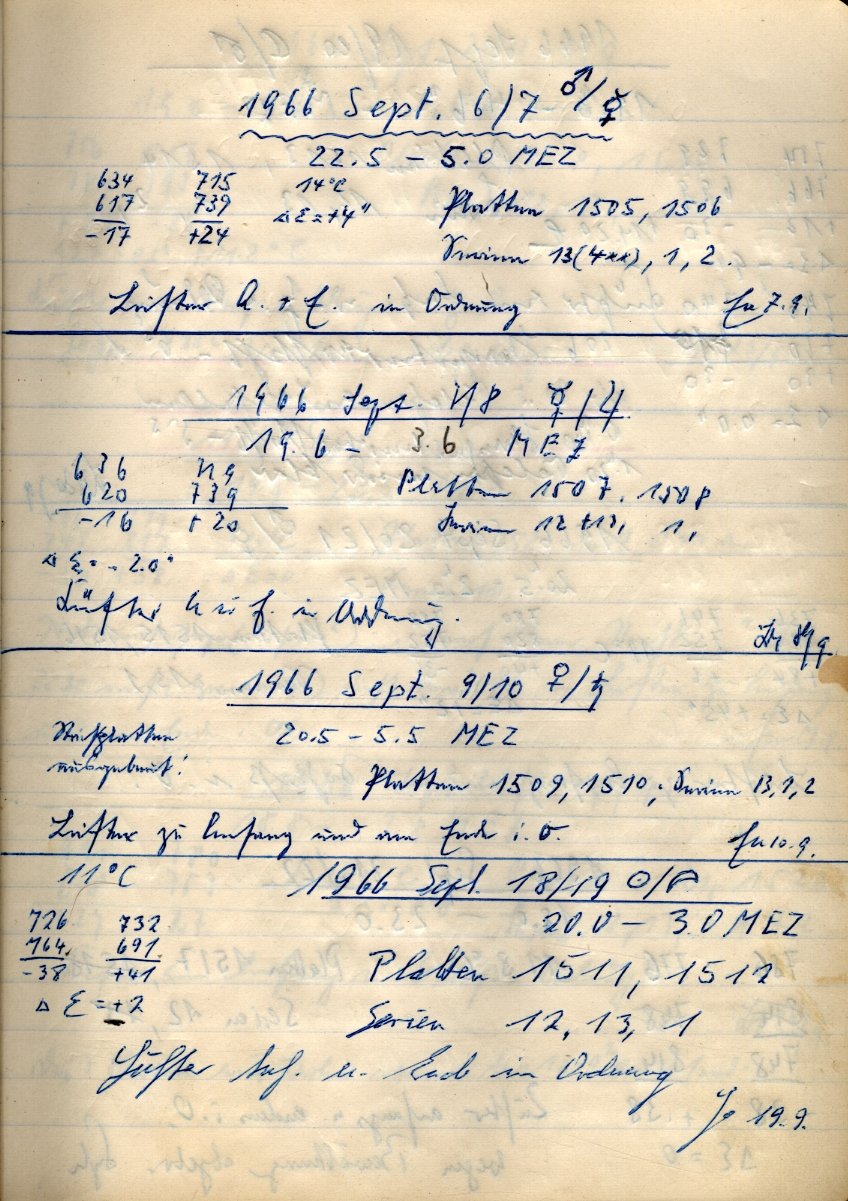 1966 Sept. 6/7 ♂/☿
22.5 – 5.0 MEZ
634 715 14°C
617 739 Δ Σ = +4" Platten 1505, 1506
-17 +24
Serien 13(4xx), 1, 2.
Lüfter A. + E. in Ordnung 7.9.
1966 Sept. 7/8 ☿/♃
19.6 – 3.6 MEZ
636 719
620 739 Platten 1507. 1508
-16 +20 Serien 12 +13, 1,
Δ Σ = - 2.0"
Lüfter A u E. in Ordnung.
8/9
1966 Sept. 9/10 ♀/♄
20.5 – 5.5 MEZ
ausgebaut!
Platten 1509, 1510; Serien 13, 1, 2
Lüfter zu Anfang und am Ende i. O. 10.9.
11°C 1966 Sept. 18/19 ☉/☾
726 732 20.0 – 3.0 MEZ
764 691
-38 +41 Platten 1511, 1512
Δ Σ = +2
Serien 12, 13, 1
Lüfter Anf. u. Ende in Ordnung
19.9.